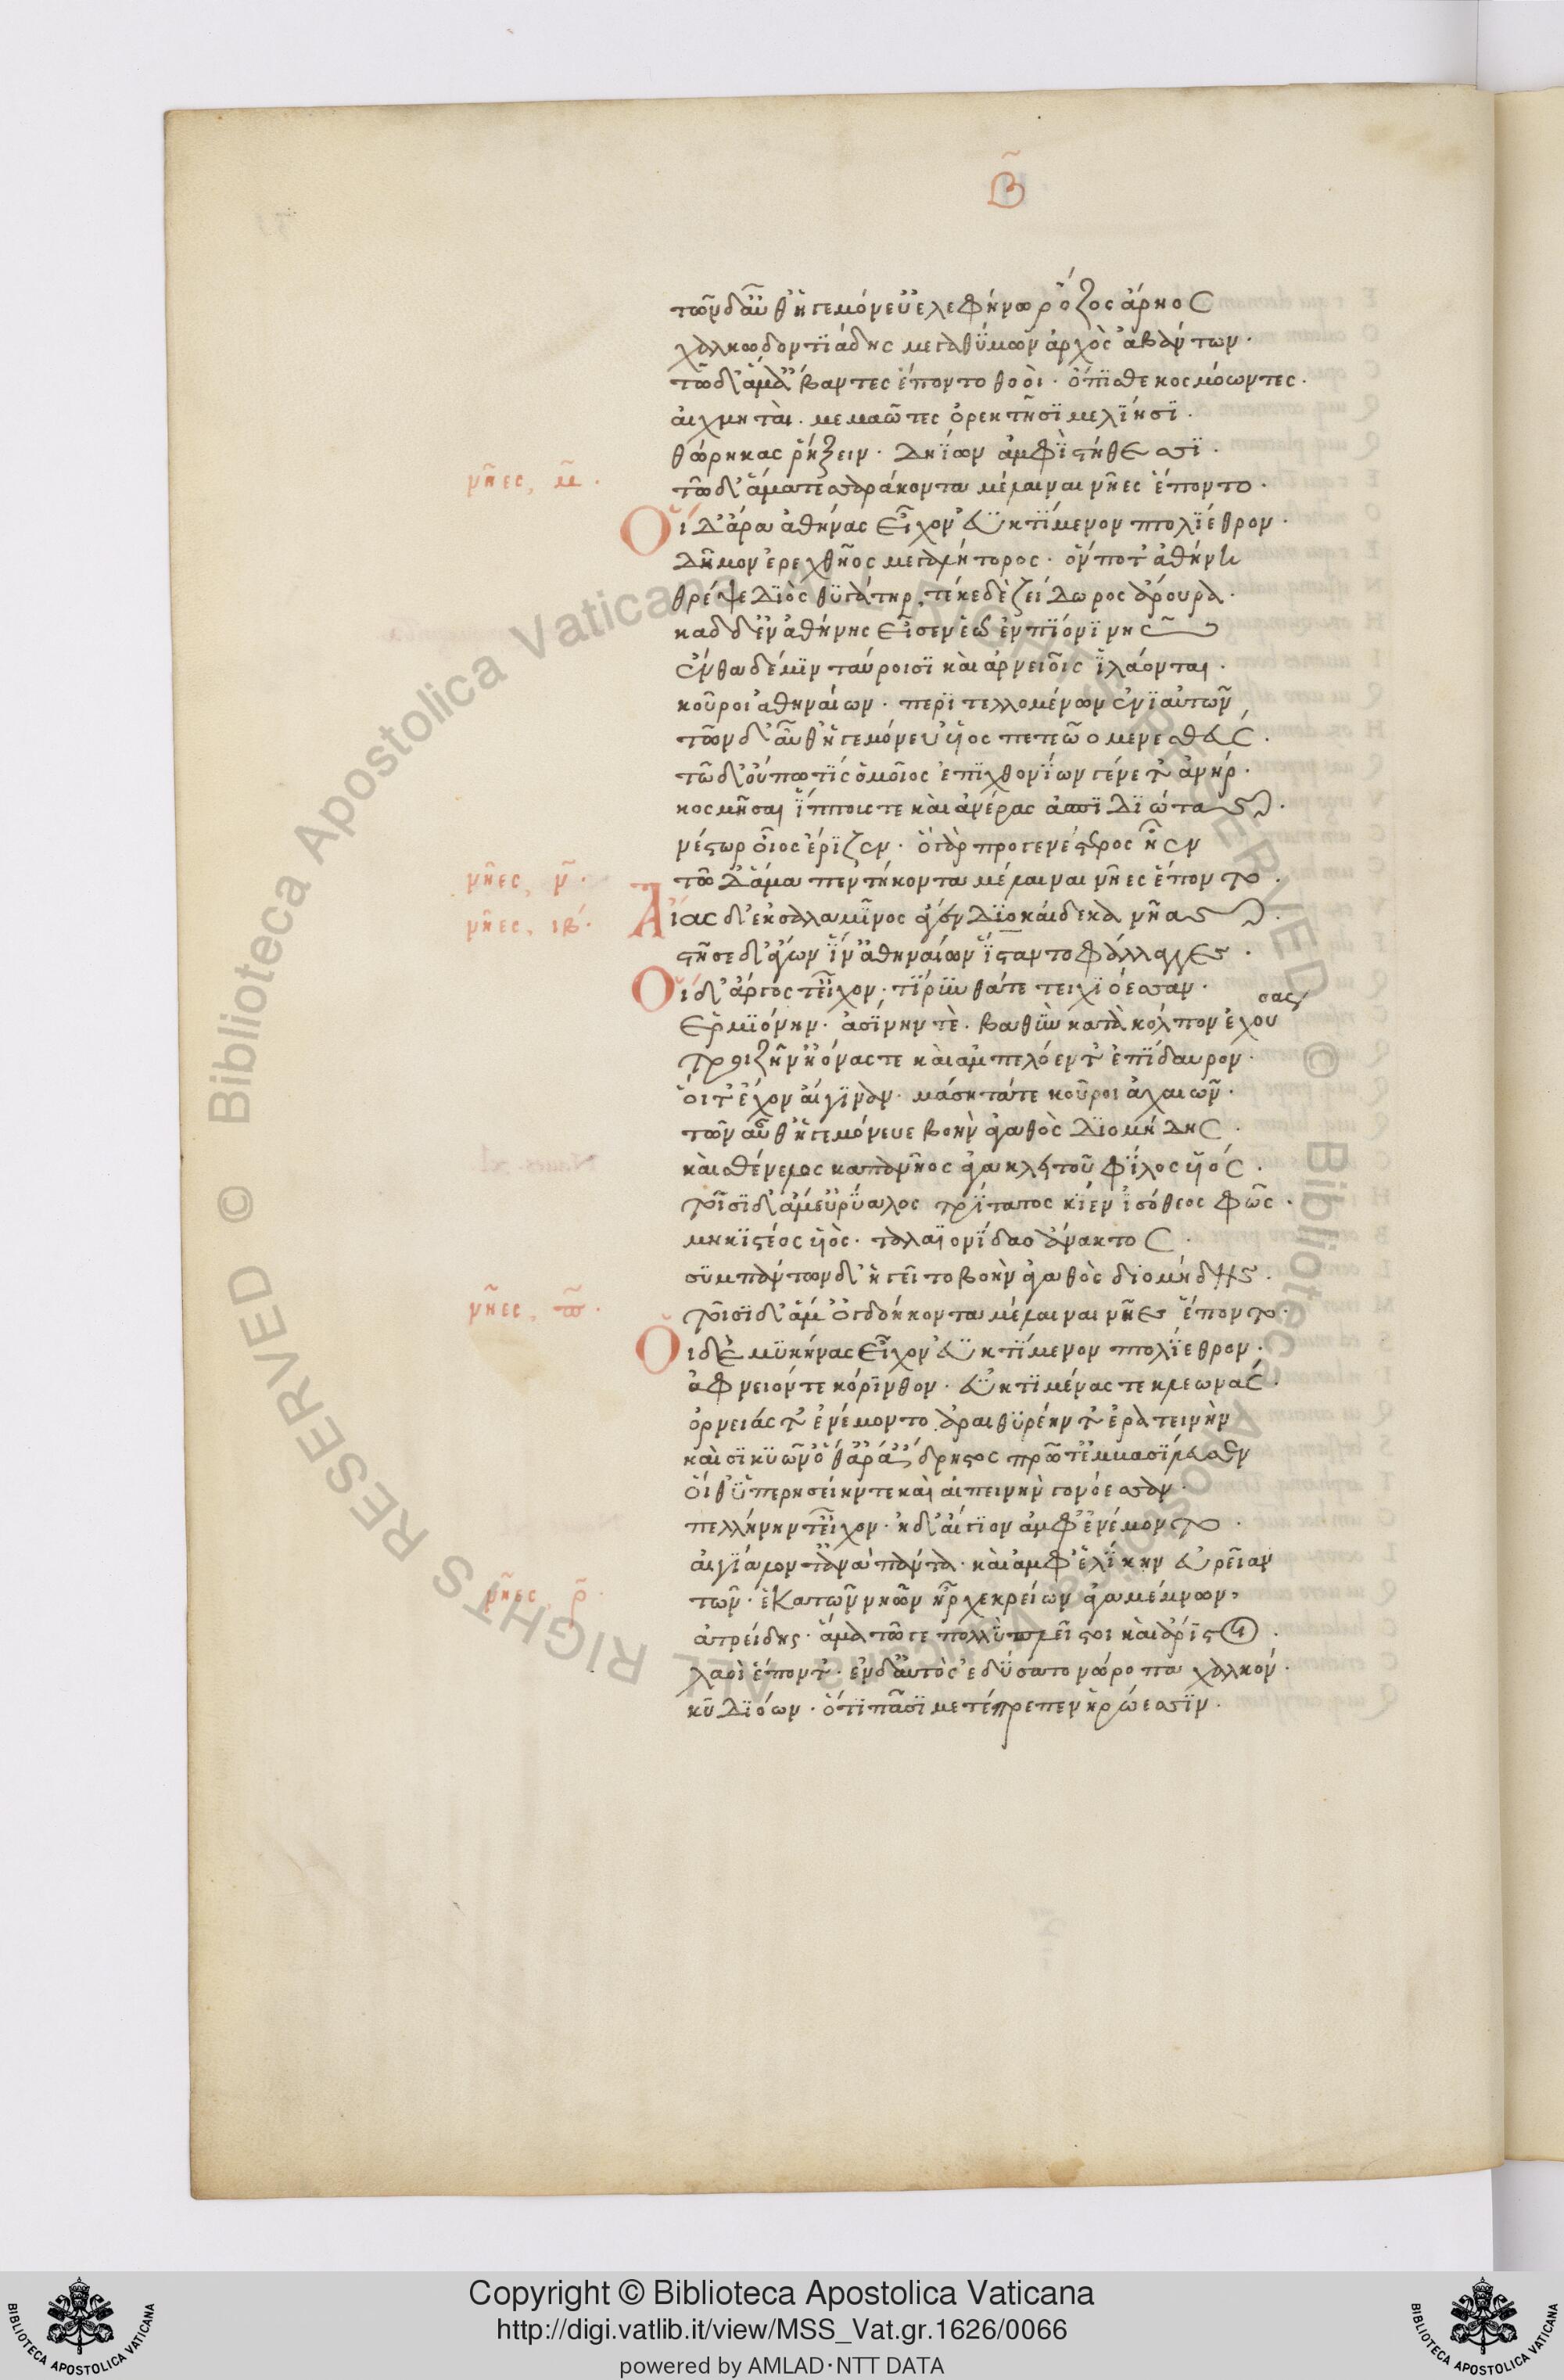 Β
τῶν δ' αὖθ' ἡγεμόνευ' ἐλεφήνωρ ὄζος ἄρηος
χαλκωδοντιάδης μεγαθύμων ἀρχὸς ἀβάντων.
τῶ δ' ἅμ' ἄβαντες ἕποντο θοοὶ. ὄπιθε κομόωντες.
αἰχμηταὶ. μεμαῶτες ὀρεκτῆσι μελίησι.
θώρηκας ῥήξειν. δηΐων ἀμφὶ στήθεσσι.
νῆες, μ.
τῶ δ' ἅμα τεσσαράκοντα μέλαιναι νῆες ἕποντο.
Οἱ δ' ἄρα ἀθήνας εἶχον ἐϋκτίμενον πτολίεθρον.
δῆμον ἐρεχθῆος μεγαλήτορος. ὅν ποτ' ἀθήνη
θρέψε διὸς θυγάτηρ, τέκε δὲ ζείδωρος ἄρουρα.
καδ δ' ἐν ἀθήνης εἷσεν ἑῶ ἐν πίονι νηῶ
ἐνθα δέ μιν ταύροισι καὶ ἀρνειοῖς ἱλάονται.
κοῦροι ἀθηναίων. περιτελλομένων ἐνιαυτῶν
τῶν δ' αὖθ' ἡγεμόνευ' υἱος πετεῶο μενεσθεύς.
τῶ δ' οὔπω τίς ὁμοῖος ἐπιχθονίων γένετ' ἀνήρ.
κοσμῆσαι ἵππους τε καὶ ἀνέρας ἀσπιδιώτας.
νέστωρ οἶος ἔριζεν. ὁ γὰρ προγενέστερος ἦεν
νῆες, ν.
τῶ δ' ἅμα πεντήκοντα μέλαιναι νῆες ἕποντο.
νῆες, ιβ.
Αἴας δ' ἐκ σαλαμῖνος ἄγεν δυοκαίδεκα νῆας.
στῆσε δ' ἄγων ἵν' ἀθηναίων ἵσταντο φάλλαγγες.
Οἱ δ' ἄργος τ' εἶχον. τίρυνθά τε τειχιόεσσαν.
ἑρμιόνην. ἀσίνην τὲ. βαθὺν κατὰ κόλπον ἐχουσας
τροιζῆν' ἠϊόνας τε καὶ ἀμπελόεντ' ἐπίδαυρον.
οἵ τ' ἔχον αἴγιναν. μάσητά τε κοῦροι ἀχαιῶν.
τῶν αὖθ' ἡγεμόνευε βοὴν ἀγαθὸς διομήδης.
καὶ σθένελος καπανῆος ἀγακλειτοῦ φίλος υἱός.
τοῖσι δ' ἅμ' εὐρύαλος τρίτατος κίεν ἰσόθεος φῶς.
μηκιστέος υἱὸς. ταλαϊονίδαο ἄνακτος.
συμπάντων δ' ἡγεῖτο βοὴν ἀγαθὸς διομήδης.
νῆες, π.
τοῖσι δ' ἅμ' ὀγδώκοντα μέλαιναι νῆες ἕποντο.
Οἱ δὲ μυκήνας εἶχον ἐϋκτίμενον πτολίεθρον.
ἀφνειόν τε κόρινθον. ἐϋκτιμένας τε κλεωνάς.
ὀρνειάς τ' ἐνέμοντο ἀραιθυρέην τ' ἐρατεινὴν
καὶ σικυῶν' ὅθ' ἄρ' ἄδρηστος πρῶτ' ἐμβασίλευεν
οἵ θ' ὑπερησείην τε καὶ αἰπεινὴν γονόεσσαν.
πελλήνην τ' εἶχον. ἠδ' αἴγιον ἀμφ' ἐνέμοντο.
αἰγίαλον τ' ἀνὰ πάντα. καὶ ἀμφ' ἑλίκην εὐρεῖαν
νῆες, ρ.
τῶν. ἑκατὸν νηῶν ἦρχε κρείων ἀγαμέμνων,
ἀτρείδης. ἅμα τῶ γε πολὺ πλεῖστοι καὶ ἄριστοι.
λαοὶ ἕποντ'. ἐν δ' αὐτὸς ἐδύσατο νώροπα χαλκόν.
κυδιόων. ὅτι πᾶσι μετέπρεπεν ἡρώεσσιν.
Copyright © Biblioteca Apostolica Vaticana
http://digi.vatlib.it/view/MSS_Vat.gr.1626/0066
powered by AMLAD·NTT DATA